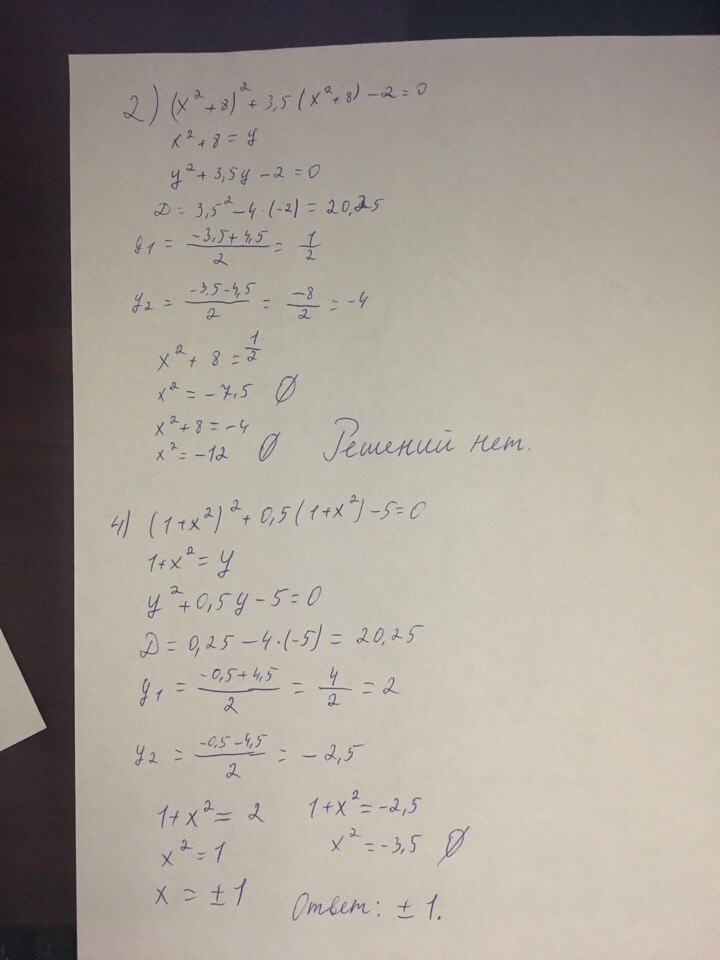 2) (x²+8)² + 3,5 (x²+8) - 2 = 0
x² + 8 = y
y² + 3,5y - 2 = 0
D = 3,5² - 4·(-2) = 20,25
y₁ = (-3,5+4,5)/2 = 1/2
y₂ = (-3,5-4,5)/2 = -8/2 = -4
x² + 8 = 1/2
x² = -7,5 ∅
x² + 8 = -4
x² = -12 ∅ Решений нет.
4) (1+x²)² + 0,5 (1+x²) - 5 = 0
1+x² = y
y² + 0,5y - 5 = 0
D = 0,25 - 4·(-5) = 20,25
y₁ = (-0,5+4,5)/2 = 4/2 = 2
y₂ = (-0,5-4,5)/2 = -2,5
1+x² = 2 1+x² = -2,5
x² = 1 x² = -3,5 ∅
x = ±1 Ответ: ±1.